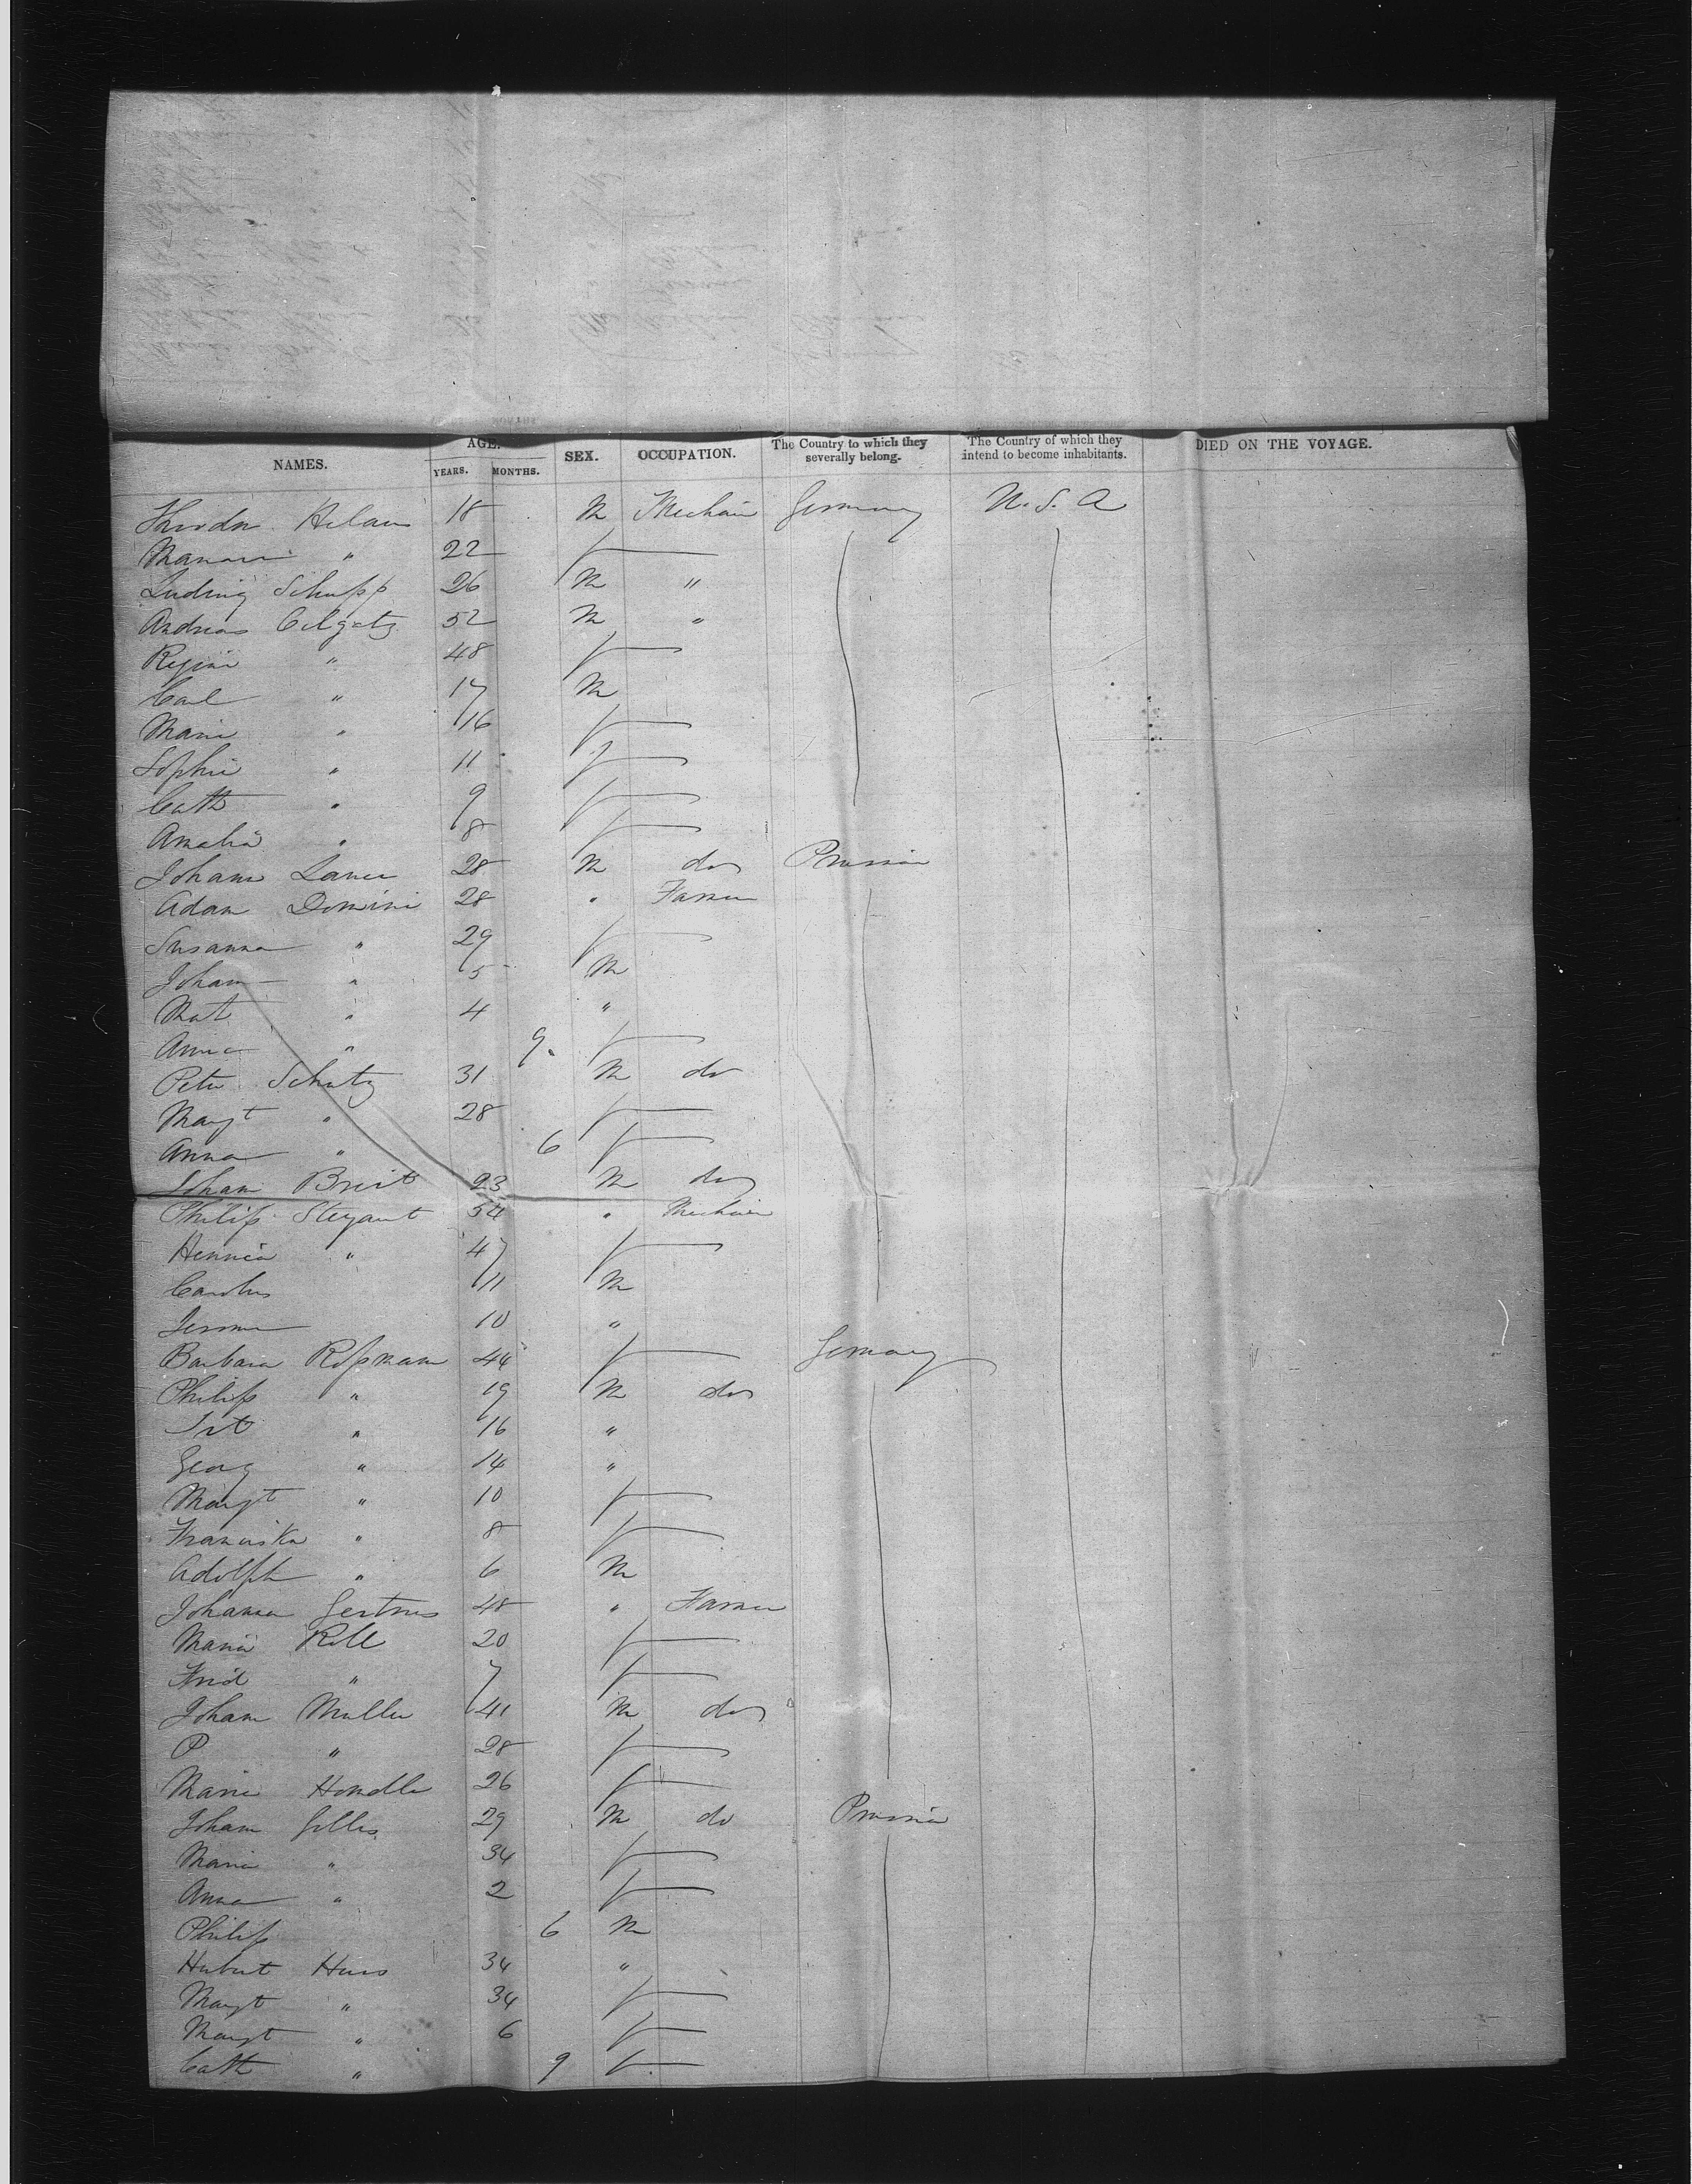 NAMES. AGE. YEARS. MONTHS. SEX. OCCUPATION. The Country to which they severally belong. The Country of which they intend to become inhabitants. DIED ON THE VOYAGE.
18 M Mechanic Germany U. S. A
" 22 f
Ludwig Schupp 26 M "
Andreas 52 M "
Regina " 48 f
Carl " 17 M
Maria " 16 f
Sophie " 11 f
Cath " 9 f
Amalia " 8 f
Johann 28 M do Prussia
Adam Domini 28 " Farmer
Susanna " 29 f
Johann " 5 M
Mat " 4 "
Anna " 9 f
Peter Schutz 31 M do
Margt " 28 f
Anna " 6 f
Johann 23 M do
Philip 54 " Mechanic
" 47 f
11 M
10 "
Barbara 44 f Germany
Philip " 19 M do
" 16 "
Georg " 14 "
Margt " 10 f
Franciska " 8 f
Adolph " 6 M
48 " Farmer
Maria 20 f
" 7 f
Johann Muller 41 M do
P " 28 f
Marie 26 f
Johann Gilles 29 M do Prussia
Maria " 34 f
Anna " 2 f
Philip 6 M
Hubert 34 "
Margt " 34 f
Margt " 6 f
Cath " 9 f